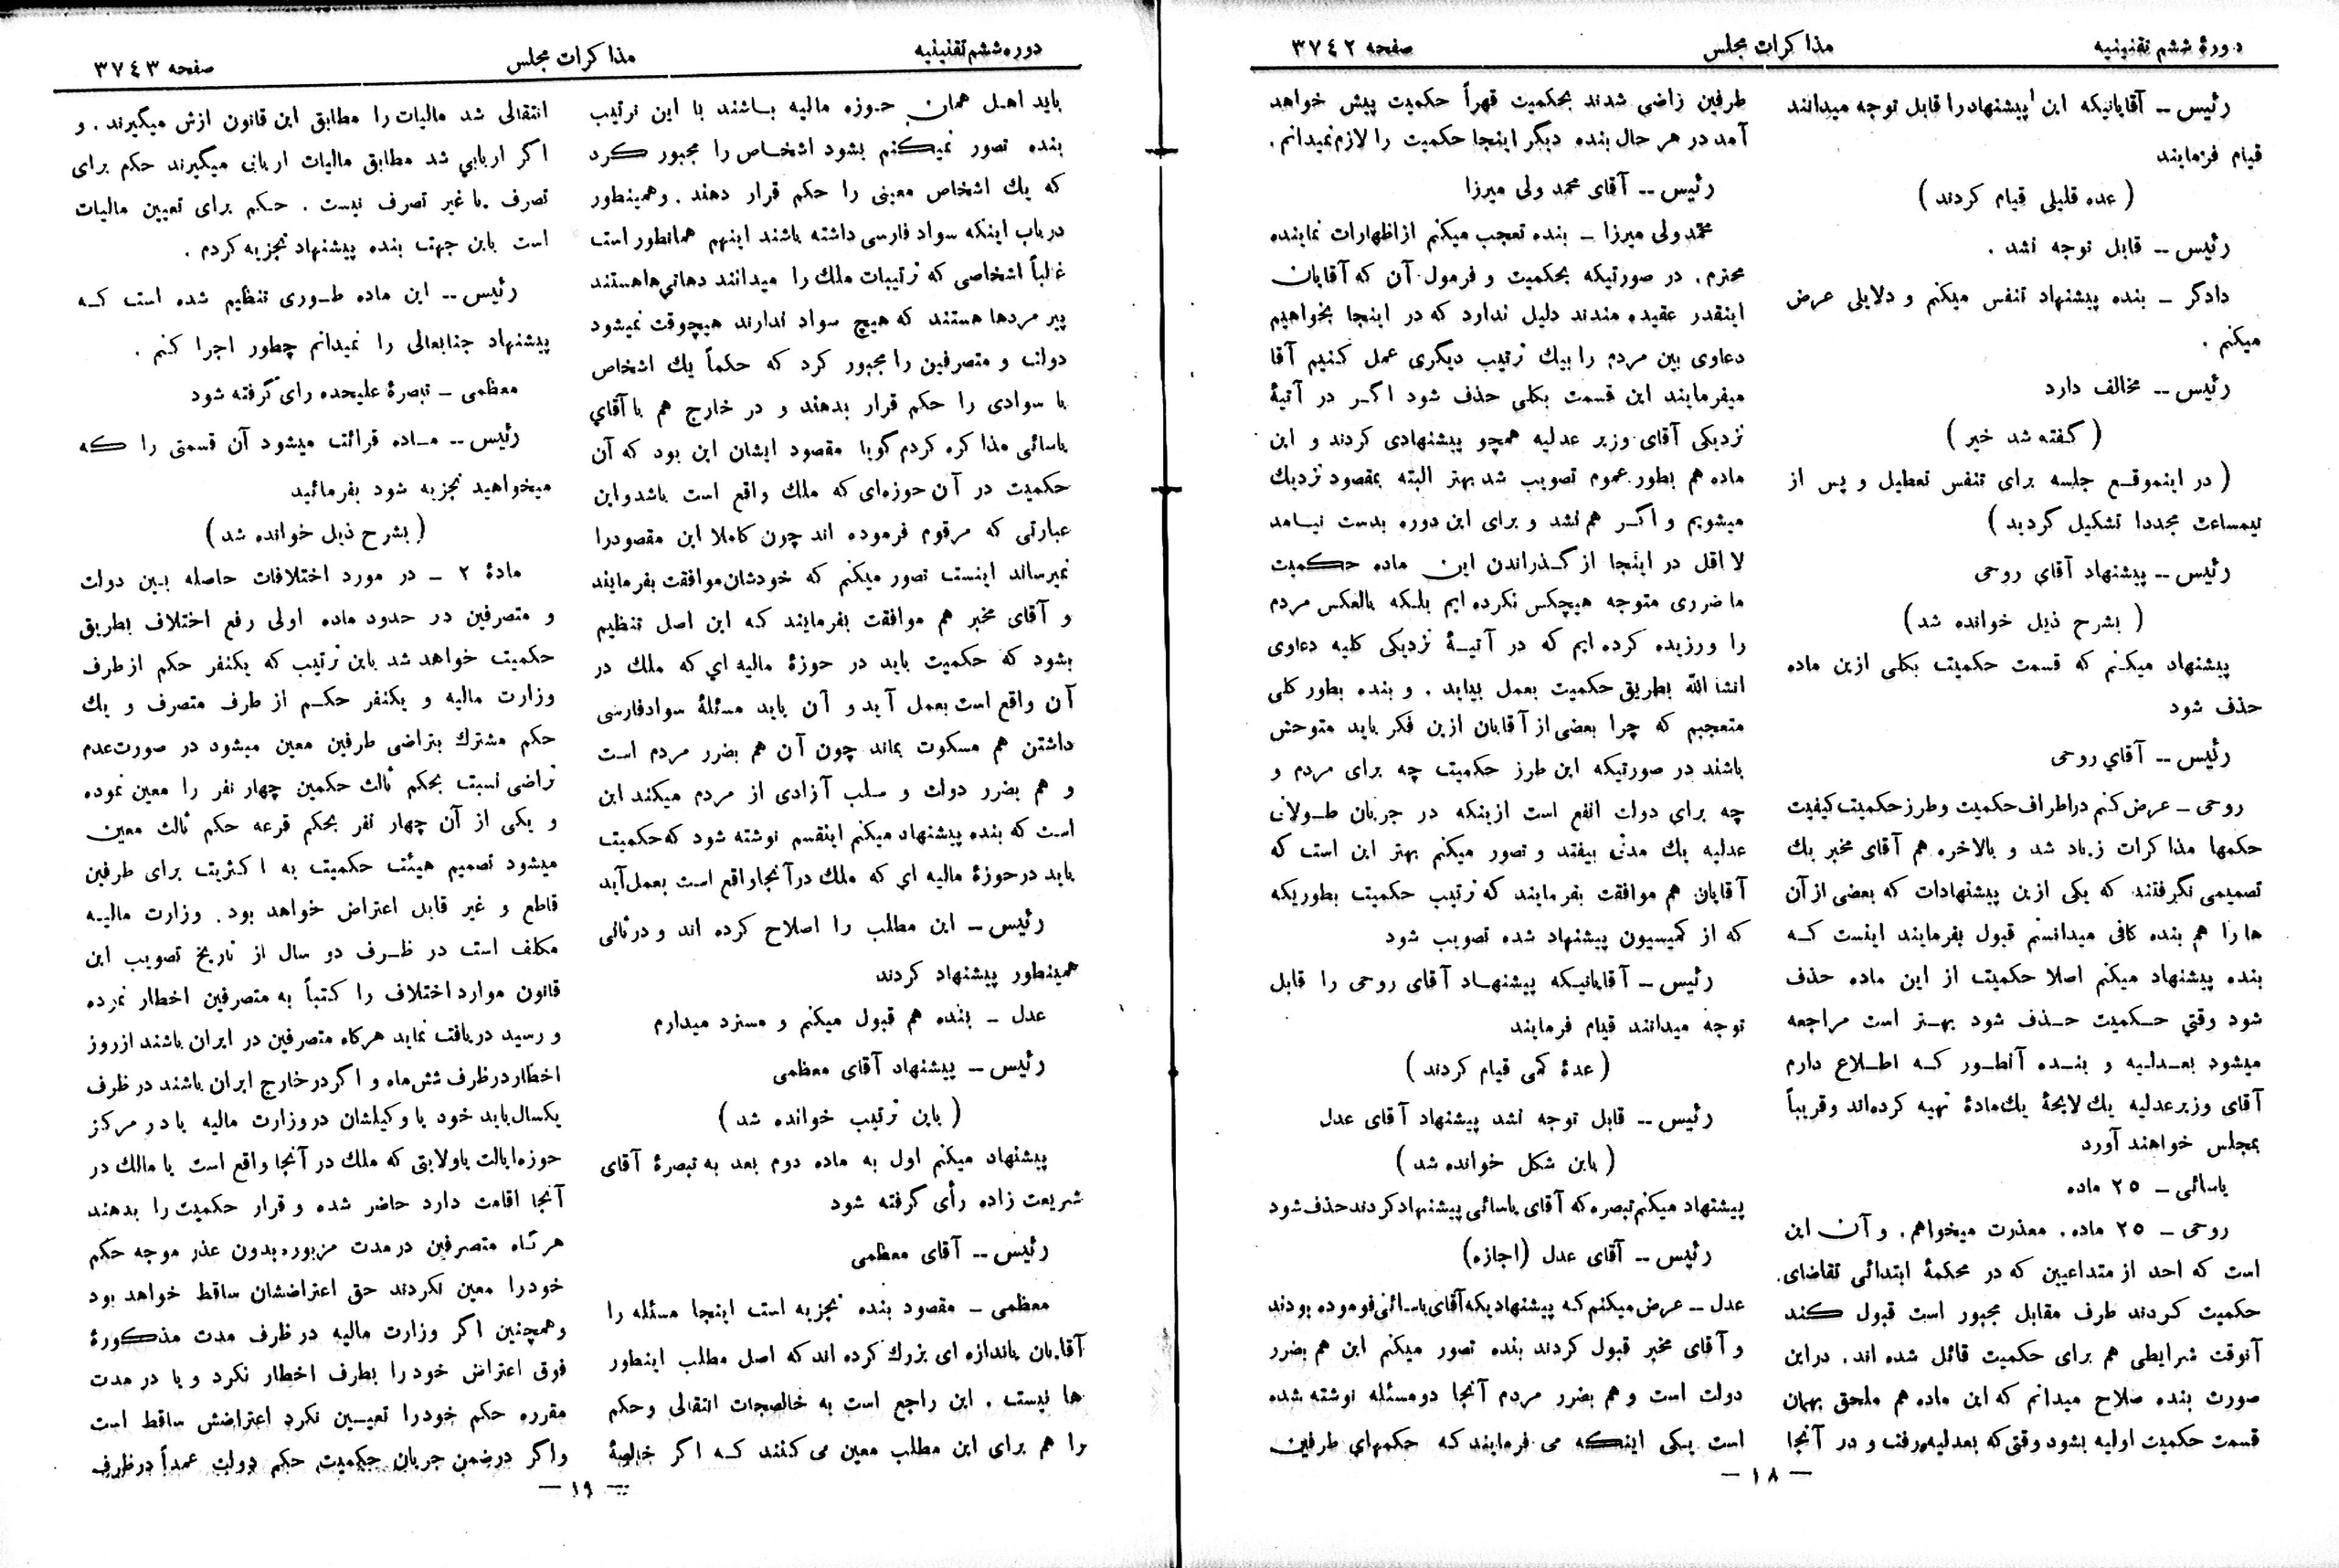 دورهٔ ششم تقنینیه
مذاکرات مجلس
صفحه ۳۷٤۲
رئیس -- آقایانیکه این پیشنهاد را قابل توجه میدانند
قیام فرمایند
( عده قلیلی قیام کردند )
رئیس -- قابل توجه نشد .
دادگر - بنده پیشنهاد تنفس میکنم و دلایلی عرض
میکنم .
رئیس -- مخالف دارد
( گفته شد خیر )
( در اینموقع جلسه برای تنفس تعطیل و پس از
نیمساعت مجددا تشکیل گردید )
رئیس -- پیشنهاد آقای روحی
( بشرح ذیل خوانده شد )
پیشنهاد میکنم که قسمت حکمیت بکلی ازین ماده
حذف شود
رئیس -- آقای روحی
روحی - عرض کنم در اطراف حکمیت و طرز حکمیت کیفیت
حکمها مذاکرات زیاد شد و بالاخره هم آقای مخبر یك
تصمیمی نگرفتند که یکی ازین پیشنهادات که بعضی از آن
ها را هم بنده کافی میدانستم قبول بفرمایند اینست که
بنده پیشنهاد میکنم اصلا حکمیت از این ماده حذف
شود وقتی حکمیت حذف شود بهتر است مراجعه
میشود بعدلیه و بنده آنطور که اطلاع دارم
آقای وزیر عدلیه یك لایحهٔ یك مادهٔ تهیه کرده‌اند و قریباً
بمجلس خواهند آورد
یاسائی - ۲٥ ماده
روحی - ۲٥ ماده. معذرت میخواهم. و آن این
است که احد از متداعیین که در محکمهٔ ابتدائی تقاضای
حکمیت کردند طرف مقابل مجبور است قبول کند
آنوقت شرایطی هم برای حکمیت قائل شده اند. در این
صورت بنده صلاح میدانم که این ماده هم ملحق بهمان
قسمت حکمیت اولیه بشود وقتی که بعدلیه رفت و در آنجا
طرفین راضی شدند بحکمیت قهراً حکمیت پیش خواهد
آمد در هر حال بنده دیگر اینجا حکمیت را لازم نمیدانم.
رئیس -- آقای محمد ولی میرزا
محمد ولی میرزا - بنده تعجب میکنم از اظهارات نماینده
محترم. در صورتیکه بحکمیت و فرمول آن که آقایان
اینقدر عقیده مندند دلیل ندارد که در اینجا بخواهیم
دعاوی بین مردم را بیك ترتیب دیگری عمل کنیم آقا
میفرمایند این قسمت بکلی حذف شود اگر در آتیهٔ
نزدیکی آقای وزیر عدلیه همچو پیشنهادی کردند و این
ماده هم بطور عموم تصویب شد بهتر البته بمقصود نزدیك
میشویم و اگر هم نشد و برای این دوره بدست نیامد
لا اقل در اینجا از گذراندن این ماده حکمیت
ما ضرری متوجه هیچکس نکرده ایم بلکه بالعکس مردم
را ورزیده کرده ایم که در آتیهٔ نزدیکی کلیه دعاوی
انشاءالله بطریق حکمیت بعمل بیاید . و بنده بطور کلی
متعجبم که چرا بعضی از آقایان ازین فکر باید متوحش
باشند در صورتیکه این طرز حکمیت چه برای مردم و
چه برای دولت انفع است ازینکه در جریان طولانی
عدلیه یك مدتی بیفتد و تصور میکنم بهتر این است که
آقایان هم موافقت بفرمایند که ترتیب حکمیت بطوریکه
که از کمیسیون پیشنهاد شده تصویب شود
رئیس - آقایانیکه پیشنهاد آقای روحی را قابل
توجه میدانند قیام فرمایند
( عدهٔ کمی قیام کردند )
رئیس -- قابل توجه نشد پیشنهاد آقای عدل
( باین شکل خوانده شد )
پیشنهاد میکنم تبصره که آقای یاسائی پیشنهاد کردند حذف شود
رئیس -- آقای عدل (اجازه)
عدل - عرض میکنم که پیشنهادیکه آقای یاسائی فرموده بودند
و آقای مخبر قبول کردند بنده تصور میکنم این هم بضرر
دولت است و هم بضرر مردم آنجا دو مسئله نوشته شده
است یکی اینکه می فرمایند که حکمهای طرفین
- ۱۸ -
دوره ششم تقنینیه
مذاکرات مجلس
صفحه ۳۷٤۳
باید اهل همان حوزه مالیه باشند با این ترتیب
بنده تصور نمیکنم بشود اشخاص را مجبور کرد
که یك اشخاص معینی را حکم قرار دهند . و همینطور
در باب اینکه سواد فارسی داشته باشند اینهم همانطور است
غالباً اشخاصی که ترتیبات ملك را میدانند دهاتی‌ها هستند
پیر مردها هستند که هیچ سواد ندارند هیچوقت نمیشود
دولت و متصرفین را مجبور کرد که حکماً یك اشخاص
با سوادی را حکم قرار بدهند و در خارج هم با آقای
یاسائی مذاکره کردم گویا مقصود ایشان این بود که آن
حکمیت در آن حوزه‌ای که ملك واقع است باشد و این
عبارتی که مرقوم فرموده اند چون کاملا این مقصود را
نمیرساند اینست تصور میکنم که خودشان موافقت بفرمایند
و آقای مخبر هم موافقت بفرمایند که این اصل تنظیم
بشود که حکمیت باید در حوزهٔ مالیه ای که ملك در
آن واقع است بعمل آید و آن باید مسئلهٔ سواد فارسی
داشتن هم مسکوت بماند چون آن هم بضرر مردم است
و هم بضرر دولت و سلب آزادی از مردم میکند این
است که بنده پیشنهاد میکنم اینقسم نوشته شود که حکمیت
باید در حوزهٔ مالیه ای که ملك در آنجا واقع است بعمل آید
رئیس - این مطلب را اصلاح کرده اند و در ثانی
همینطور پیشنهاد کردند
عدل - بنده هم قبول میکنم و مسترد میدارم
رئیس - پیشنهاد آقای معظمی
( باین ترتیب خوانده شد )
پیشنهاد میکنم اول به ماده دوم بعد به تبصرهٔ آقای
شریعت زاده رأی گرفته شود
رئیس -- آقای معظمی
معظمی - مقصود بنده تجزیه است اینجا مسئله را
آقایان باندازه ای بزرك کرده اند که اصل مطلب اینطور
ها نیست . این راجع است به خالصجات انتقالی و حکم
را هم برای این مطلب معین می کنند که اگر خالصهٔ
انتقالی شد مالیات را مطابق این قانون ازش میگیرند . و
اگر اربابی شد مطابق مالیات اربابی میگیرند حکم برای
تصرف یا غیر تصرف نیست . حکم برای تعیین مالیات
است باین جهت بنده پیشنهاد تجزیه کردم .
رئیس -- این ماده طوری تنظیم شده است که
پیشنهاد جنابعالی را نمیدانم چطور اجرا کنم .
معظمی - تبصرهٔ علیحده رای گرفته شود
رئیس -- ماده قرائت میشود آن قسمتی را که
میخواهید تجزیه شود بفرمائید
( بشرح ذیل خوانده شد )
مادهٔ ۲ - در مورد اختلافات حاصله بین دولت
و متصرفین در حدود ماده اولی رفع اختلاف بطریق
حکمیت خواهد شد باین ترتیب که یکنفر حکم از طرف
وزارت مالیه و یکنفر حکم از طرف متصرف و یك
حکم مشترك بتراضی طرفین معین میشود در صورت عدم
تراضی نسبت بحکم ثالث حکمین چهار نفر را معین نموده
و یکی از آن چهار نفر بحکم قرعه حکم ثالث معین
میشود تصمیم هیئت حکمیت به اکثریت برای طرفین
قاطع و غیر قابل اعتراض خواهد بود. وزارت مالیه
مکلف است در ظرف دو سال از تاریخ تصویب این
قانون موارد اختلاف را کتباً به متصرفین اخطار نموده
و رسید دریافت نماید هرگاه متصرفین در ایران باشند از روز
اخطار در ظرف شش ماه و اگر در خارج ایران باشند در ظرف
یکسال باید خود یا وکیلشان در وزارت مالیه یا در مرکز
حوزه ایالت یا ولایتی که ملك در آنجا واقع است یا مالك در
آنجا اقامت دارد حاضر شده و قرار حکمیت را بدهند
هر گاه متصرفین در مدت مزبوره بدون عذر موجه حکم
خود را معین نکردند حق اعتراضشان ساقط خواهد بود
و همچنین اگر وزارت مالیه در ظرف مدت مذکورهٔ
فوق اعتراض خود را بطرف اخطار نکرد و یا در مدت
مقرره حکم خود را تعیین نکرد اعتراضش ساقط است
و اگر در ضمن جریان حکمیت حکم دولت عمداً در ظرف
- ۱۹ -